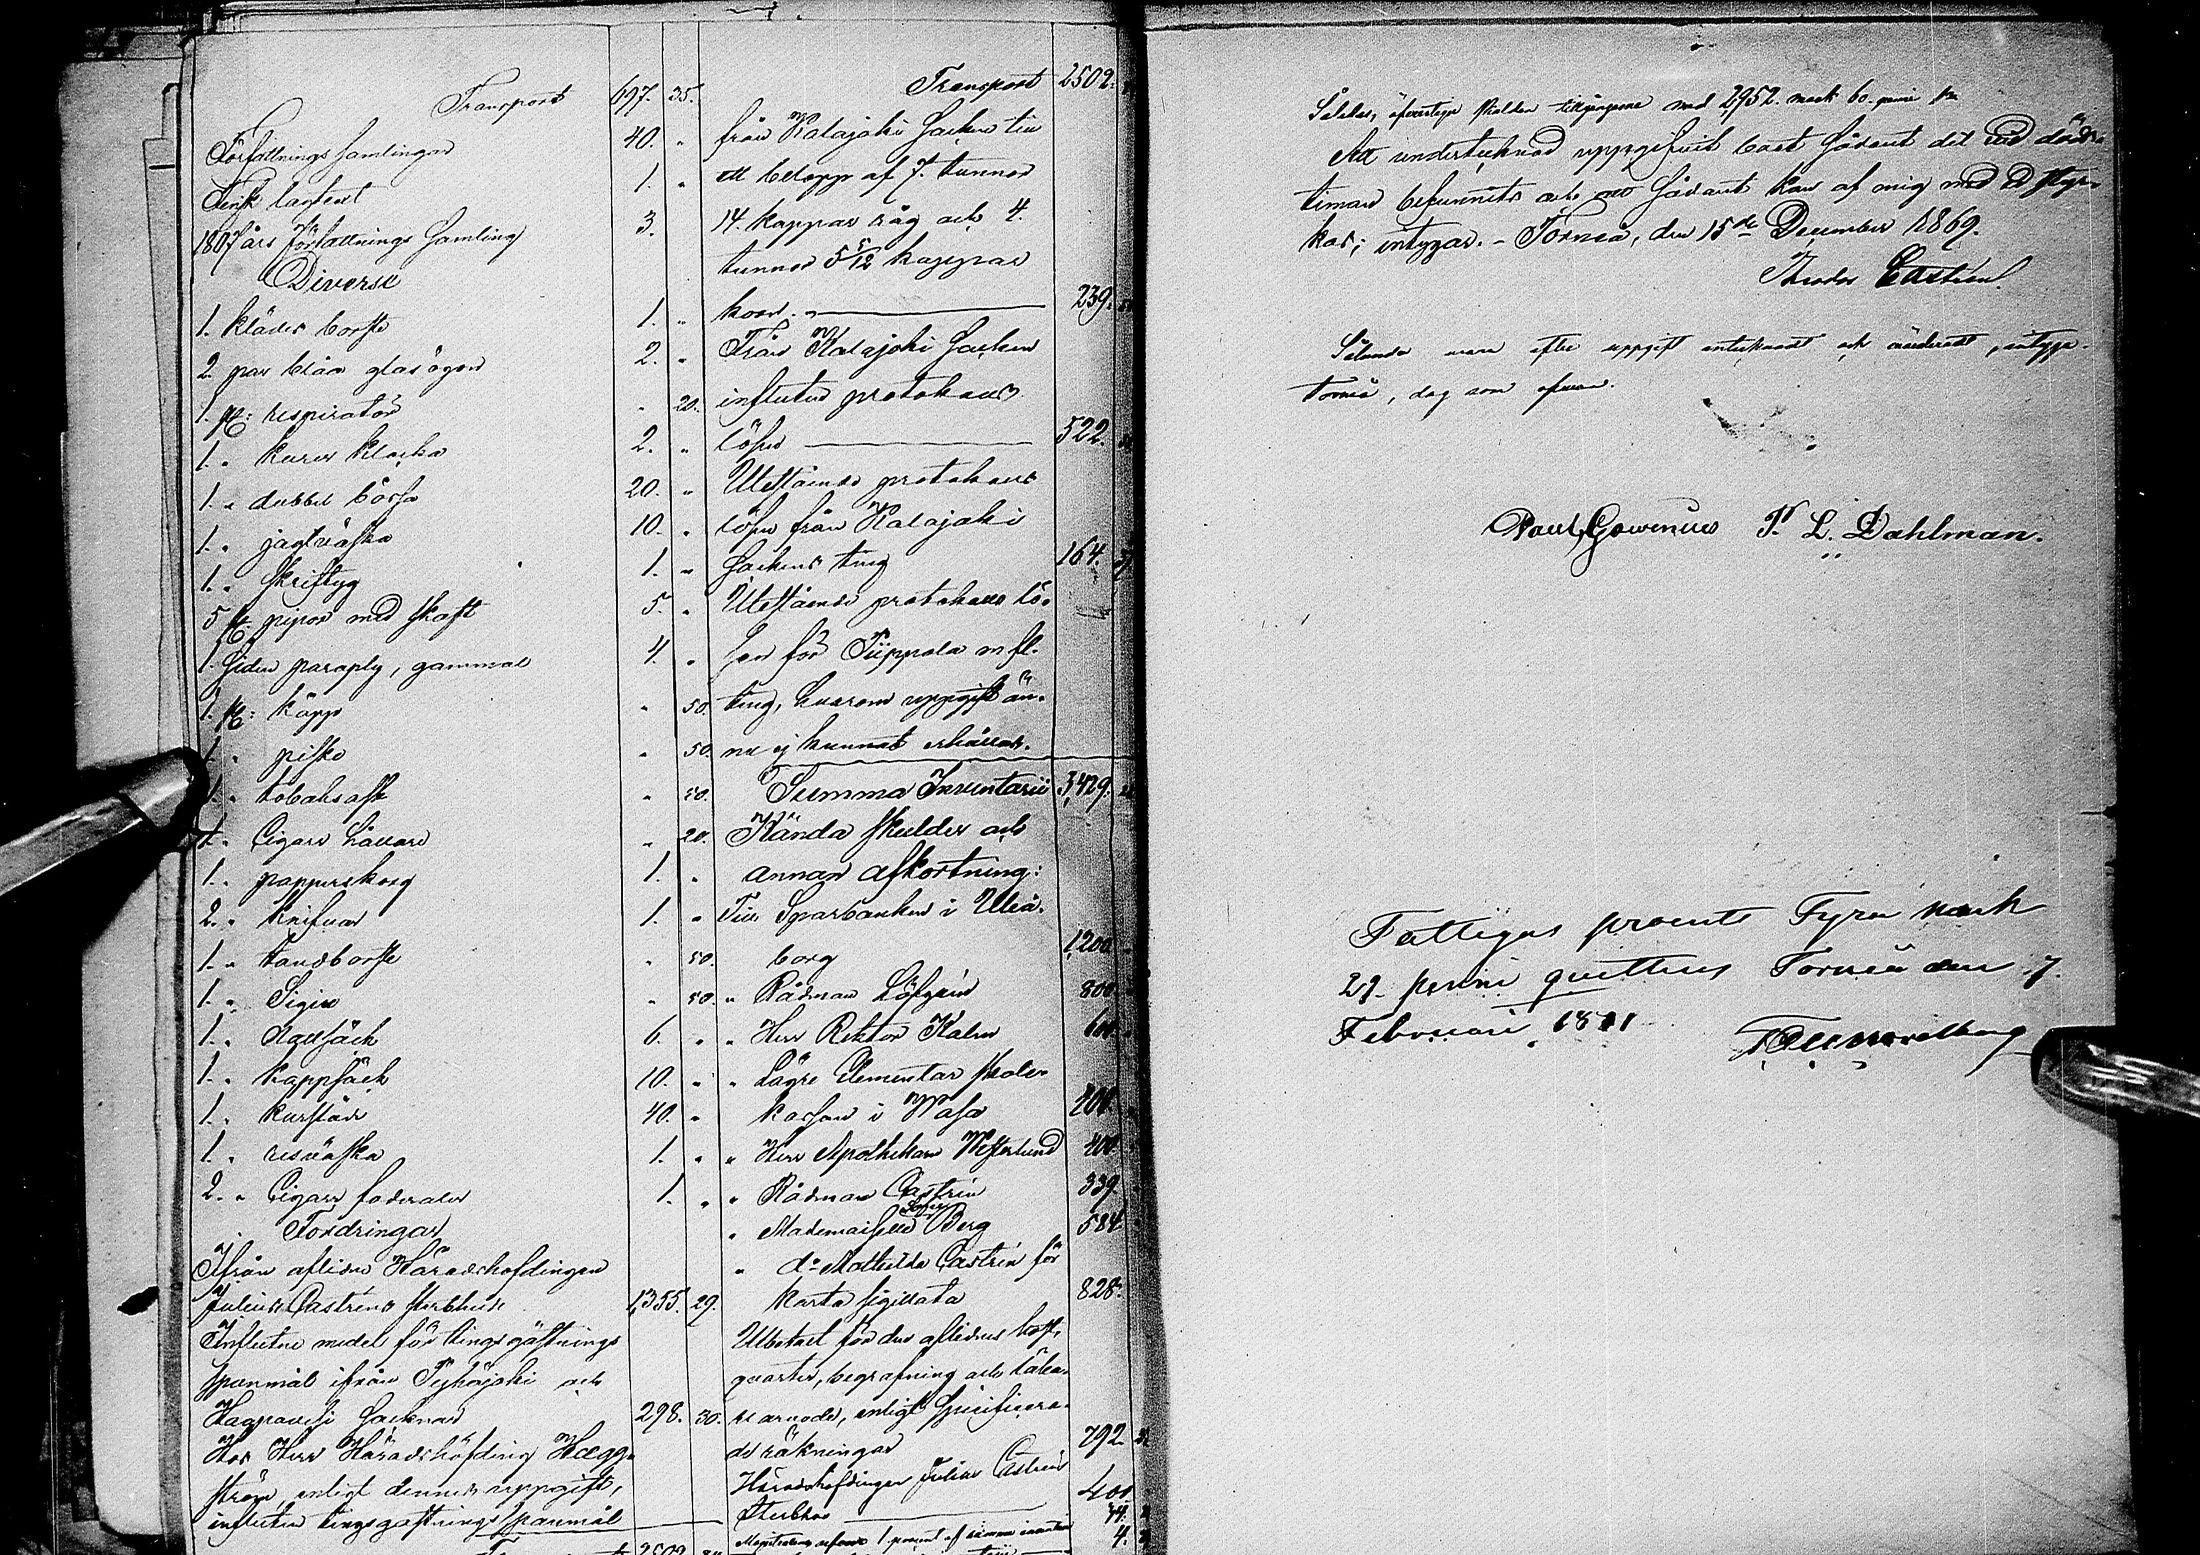 Transport 697. 35.
Författnings Samlingar 40. "
Finsk lagtext 1. "
1807 års Författnings Samling 3.
Diverse
1. kläder borste 1. "
2. par blåa glasögon 2. "
1. st: respirator " 20.
1. " 2. "
1. " dubbel bössa 20. "
1. " jagtväska 10. "
1. " skriftyg 1. "
5 st: pipor med skaft 5. "
1. Siden paraply, gammal 4. "
1. st: käpp " 50.
1. " piska " 50.
1. " tobaksask " 50.
1. " Cigarr hållare " 20.
1. " papperskorg 1. "
2. " knifvar 1. "
1. " tandborste " 50.
1. " Sigill " 50.
1. " Nattsäck 6. "
1. " kappsäck 10. "
1. " 40. "
1. " resväska 1. "
2. " Cigarr foderaler 1. "
Fordringar
Ifrån aflidne Häradshöfdingen
Julius Castréns sterbhus 1,355. 29.
Influtne medel för tingsgästnings
spanmål ifrån Pyhäjoki och
Haapavesi Socknar 298. 30.
Hos Herr Häradshöfding Hægg-
ström, enligt dennes uppgift,
influten tingsgästnings spanmål
2509.
Transport 2509.
från Kalajoki Socken till
ett belopp af 7. tunnor
14. kappar råg och 4.
tunnor 5 5/12 kappar
korn. 239.
Från Kalajoki Socken
influtna protokolls
lösen 522.
Utestående protokolls
lösen från Kalajoki
Sockens ting 164.
Utestående protokolls lö-
sen för Piippola m fl.
ting, hvarom uppgift än-
nu ej kunnat erhållas.
Summa Inventarii 3,429.
Kända skulder och
annan afkortning:
Till Sparbanken i Uleå-
borg 1,200.
" Rådman Löfgrén 800.
" Herr Rektor Kalm 600.
" Lägre Elementar skole-
kassan i Wasa 400.
" Herr Apothekare Westerlund 400.
" Rådman Castrén 339.
" Mademoiselle Berg 584.
" d:o Mathilda Castrén för
karta sigillata 828.
Utbetalt för den aflidnes kost,
qvarter, begrafning och läka-
re arvode, enligt specificera-
de räkningar 792.
Häradshöfdingen Julius Castréns
Sterbhus 400.
44.
1 procent af 4.
Således, öfverstiger skulden tillgångarne med 2952. mark 60. penni
Att undertecknad uppgifvit boet sådant det vid döds-
timan befunnits och att sådant kan af mig med ed styr-
kas; intygar. – Torneå, den 15de December 1869.
Theodor Castrén.
Sålunda vara efter uppgift antecknadt och värderadt, intyga.
Torneå, dag som ofvan.
Paul Govenius P. L. Dahlman.
Fattigas procent Fyra mark
29 penni qvitteras Torneå den 7.
Februari 1871